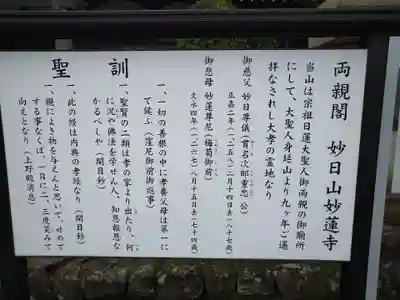 両親閣　妙日山妙蓮寺
当山は宗祖日蓮大聖人御両親の御廟所
にして、大聖人身延山より九ヶ年ご遥
拝なされし大孝の霊地なり
御慈父　妙日尊儀（貫名次郎重忠公）
正嘉二年（一、二五八）二月十四日去（八十七歳）
御悲母　妙蓮尊尼（梅菊御前）
文永四年（一、二六七）八月十五日去（七十四歳）
聖訓
一、一切の善根の中に孝養父母は第一に
て候ふ（窪尼御前御返事）
一、聖賢の二類は孝の家より出たり、何
に況や佛法を学せん人、知恩報恩な
かるべしや（開目鈔）
一、此の経は内典の孝経なり（開目鈔）
一、親によき物を与えんと思いて、せめて
する事なくば、一日に二、三度笑みて
向えとなり（上野殿消息）